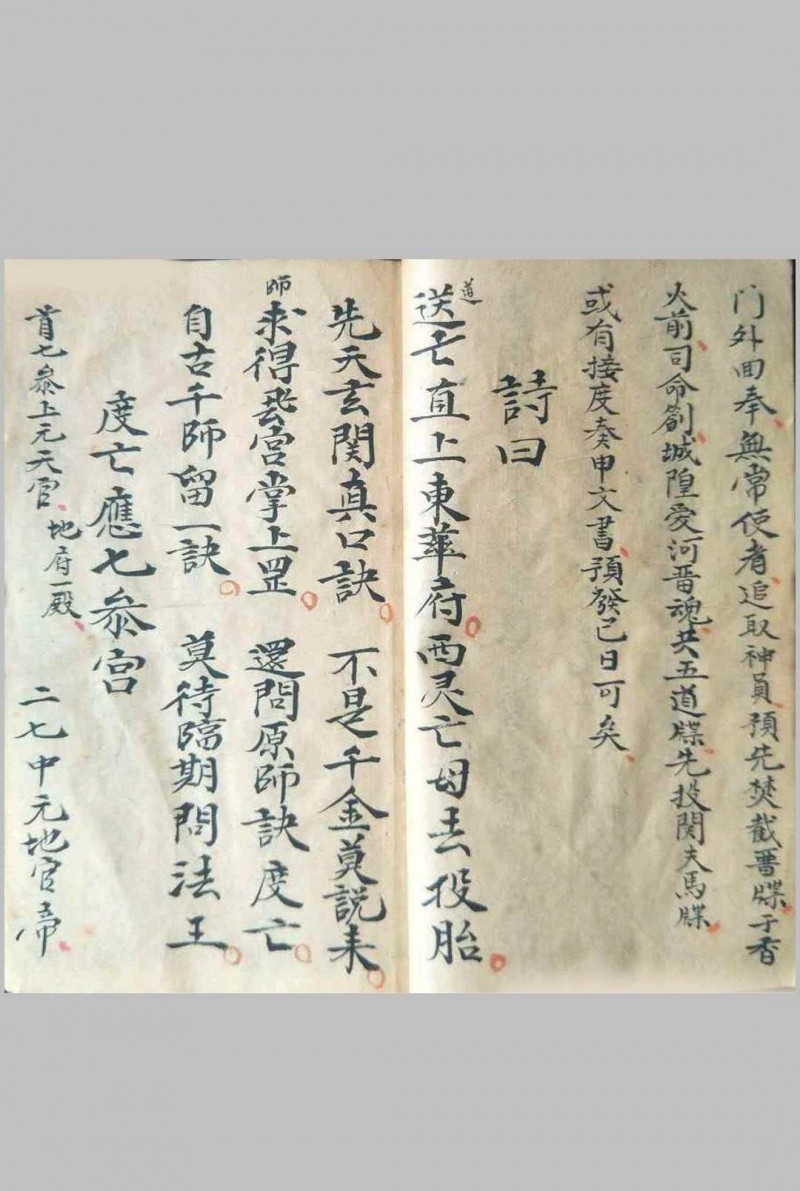 門外回奉無常使者追取神員預先焚截晋牒于香
火前司命劄城隍爱河晋魂共五道牒先投関夫馬牒
或有接度奏申文書預發已日可矣
詩曰
道
送亡直上東華府西灵亡母去投胎
先天玄関真口訣不是千金莫説来
師
求得宫掌上罡還問原師訣度亡
自古千師留一訣莫待臨期問法王
度亡應七叅宫
首七叅上元天官地府一殿二七中元地官帝